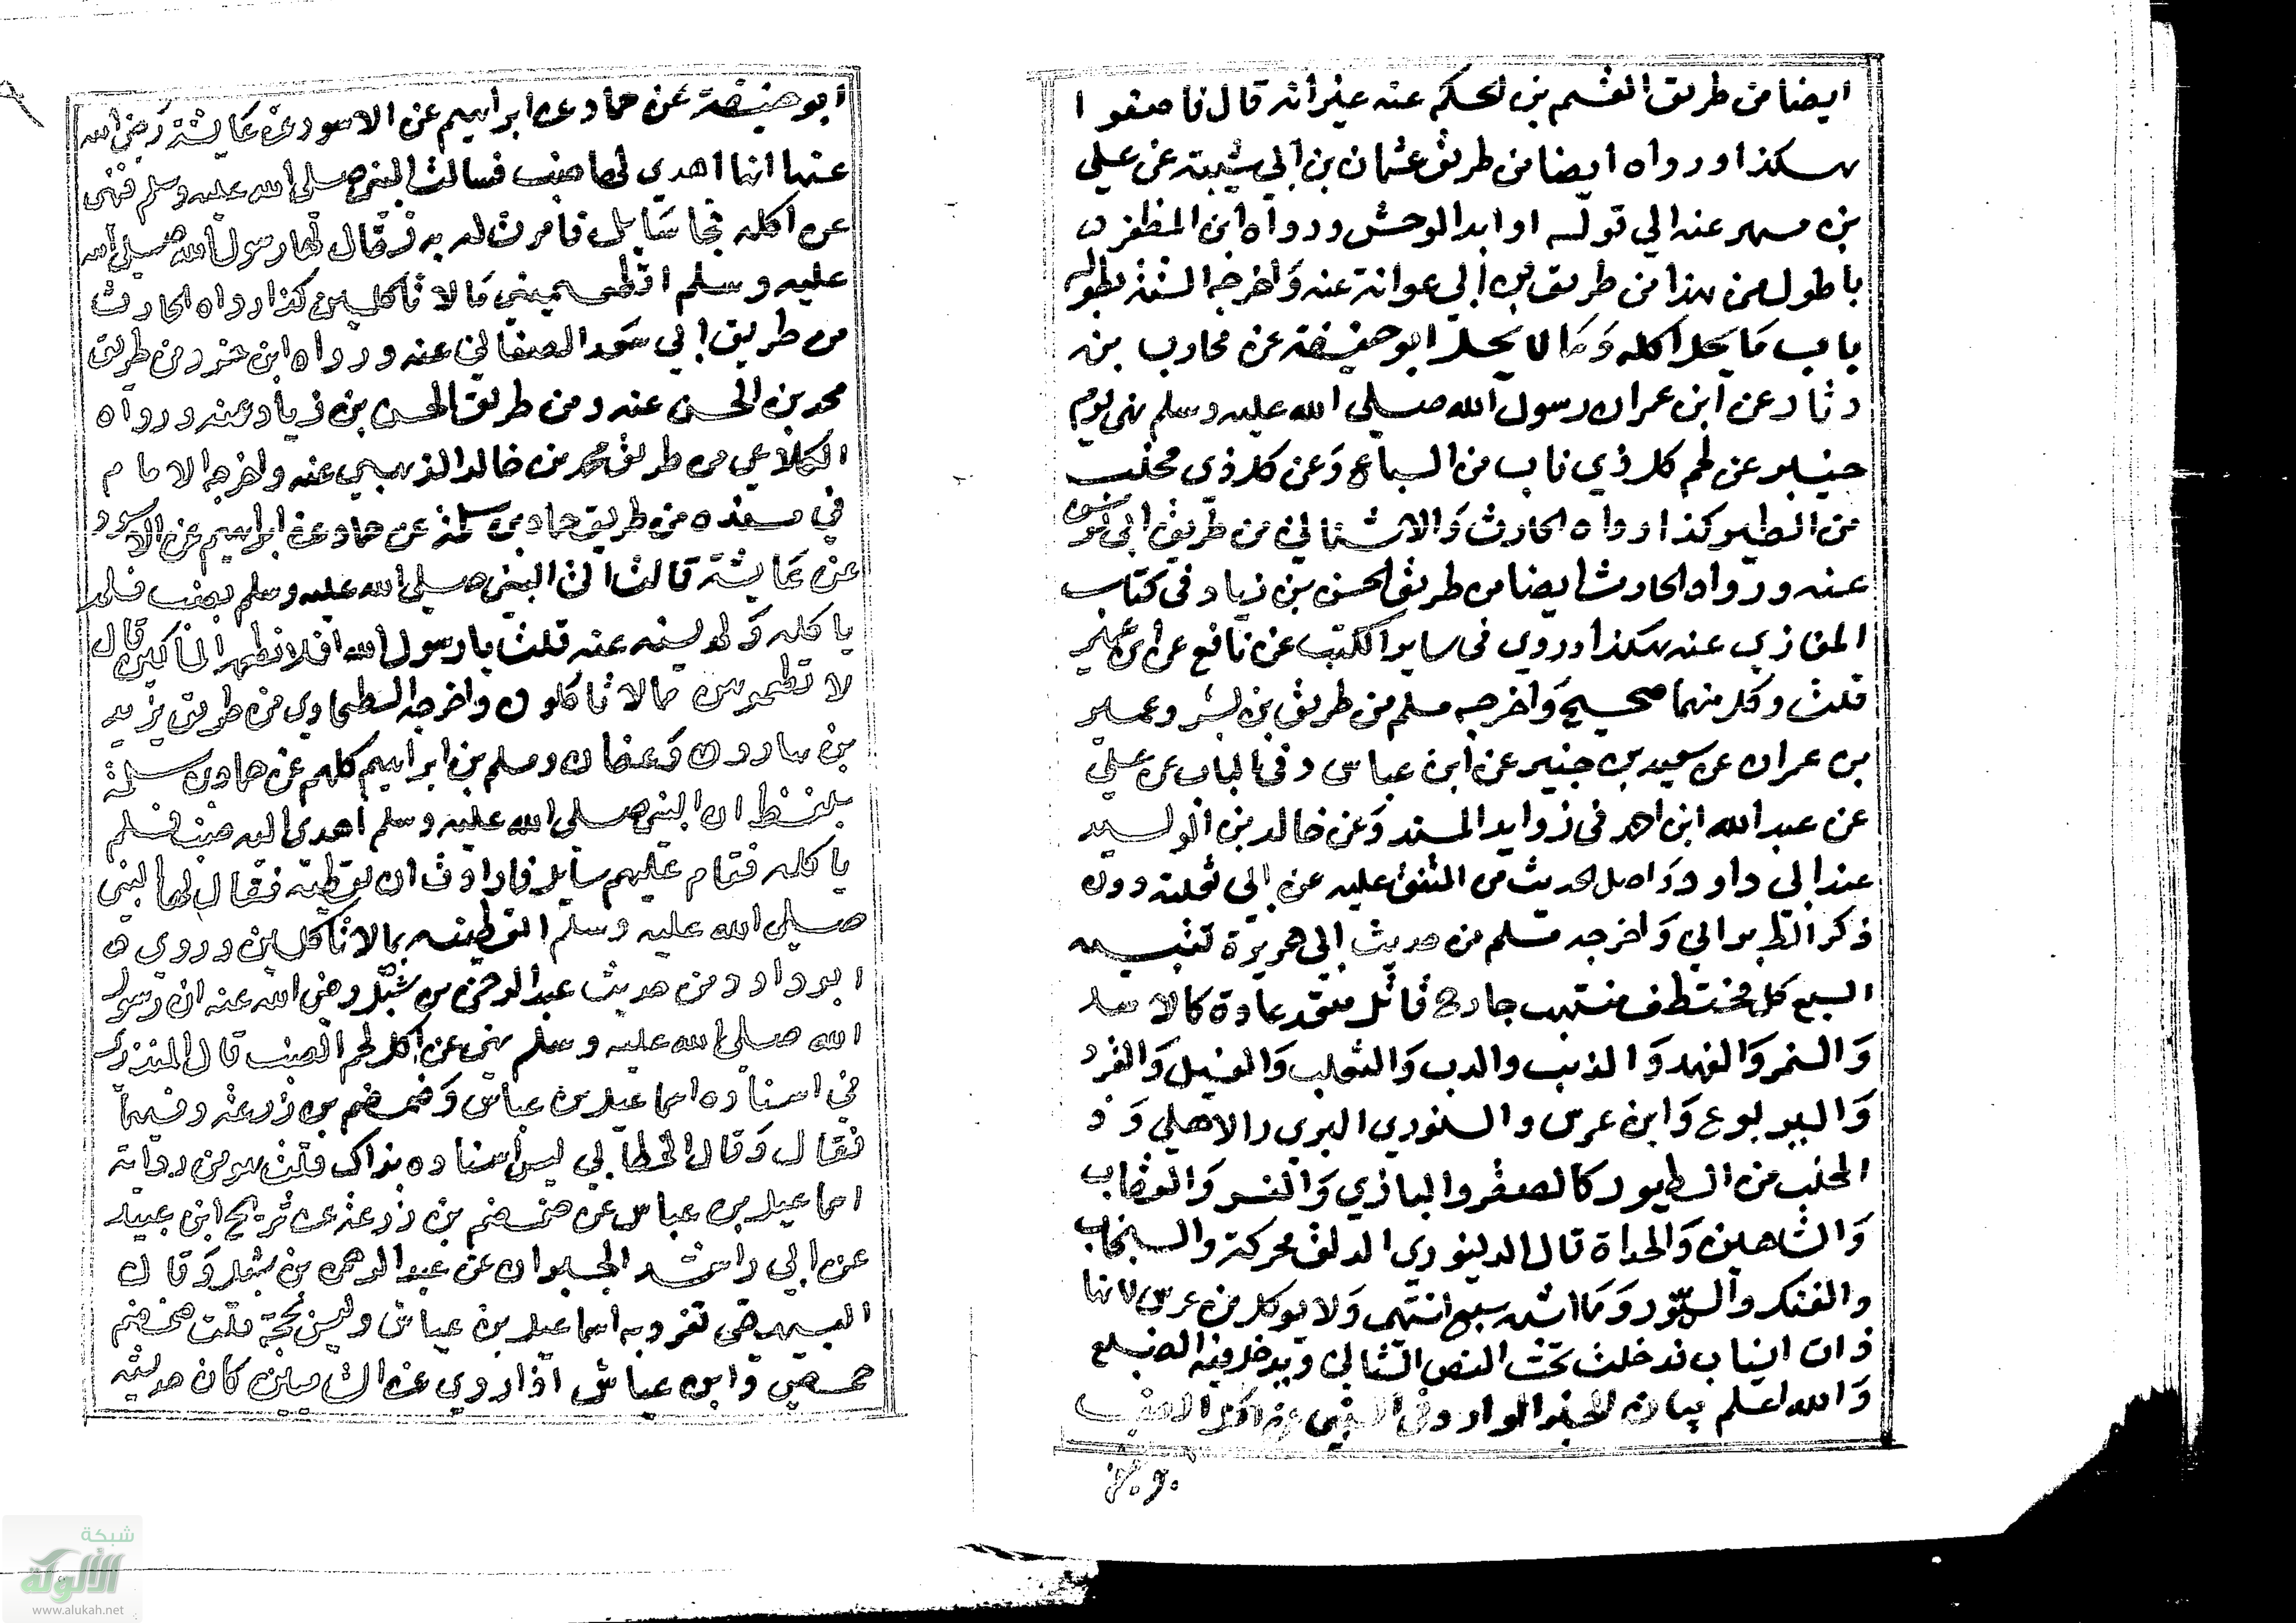 ايضا من طريق القسم بن الحكم عنه غير انه قال فاصنعوا
هكذا ورواه ايضا من طريق عثمان بن ابي شيبة عن علي
بن مسهر عنه الي قوله اوابد الوحش ورواه ابن المظفر
باطول من هذا من طريق بن ابي عوانة عنه وَاخرجه الستة بطوله
باب مَا يحل اكله وَمَا لا يحل ابو حنيفة عن محارب بن
دثار عن ابن عمر ان رسول الله صلي الله عليه وسلم نهى يوم
خيبر عن لحم كل ذي ناب من السباع وَعن كل ذي مخلب
من الطير كذا رواه الحارث وَالاشناني من طريق ابي
عنه ورواه الحارث ايضا من طريق الحسن بن زياد في كتاب
المغازي عنه هكذا وروي في ساير الكتب عن نافع عن ابن عمر
قلت وكل منهما صحيح وَاخرجه مسلم من طريق بن بشر وعمير
بن عمران عن سعيد بن جبير عن ابن عباس وفي الباب عن علي
عن عبد الله ابن احمد في زوايد المسند وَعن خالد بن الوليد
عند ابي داود وَاصل الحديث من المتفق عليه عن ابي ثعلبة دون
ذكر الطير والي وَاخرجه مسلم من حديث ابي هريرة تنبيه
السبع كل مختطف منتهب جارح قاتل متعد عادة كالاسد
وَالنمر وَالفهد وَالذيب والدب وَالثعلب وَالفيل وَالقرد
وَاليربوع وَابن عرس والسنوري البري والاهلي وَذ
المخلب من الطيور كالصقر والبازي وَالنسر وَالعقاب
وَالشاهين وَالحداة قال الدينوري الدلق محركة والسنجاب
والفنك والسمور وَمَا اشبه سبع انتهى وَلا يوكل من عرس لانها
ذات انياب فدخلت تحت النص الثاني ويدخل فيه الضبع
وَالله اعلم بيان للخبر الوارد في النهي عن اكل الضب
ابو حنيفة عن حماد عن ابراهيم عن الاسود عن عَايشة رَضي الله
عنها انها اهدي لها ضب فسالت النبي صلي الله عليه وسلم فنهى
عن اكله فجا سَايل فامرت له به فقال لها رسول الله صلي الله
عليه وسلم اتطعميني مَا لا تاكلين كذا رواه الحارث
من طريق ابي سَعد الصغاني عنه ورواه ابن خسرو من طريق
محمد بن الحسن عنه ومن طريق الحسن بن زياد عنه ورواه
الكلاعي من طريق محمد بن خالد الذهبي عنه واخرجه الامام
في مسنده من طريق حماد بن سلمة عن حماد عن ابراهيم عن الاسود
عن عَايشة قالت اتى النبي صلي الله عليه وسلم بضب فلم
ياكله وَلم ينه عنه قلت يا رسول الله افلا نطعمه المساكين قال
لا تطعموهن مما لا تاكلون واخرجه الطحاوي من طريق يزيد
بن هارون وَعفان ومسلم بن ابراهيم كلهم عن حماد بن سلمة
بلفظ ان النبي صلي الله عليه وسلم اهدى اليه ضب فلم
ياكله فقام عليهم سايل فارادت ان تعطيه فقال لها النبي
صلي الله عليه وسلم اتعطينه مالا تاكلين وروي
ابو داود من حديث عبد الرحمن بن شبل رضي الله عنه ان رسول
الله صلي الله عليه وسلم نهى عن اكل لحم الضب قال المنذري
في اسناده اسماعيل بن عياش وَضمضم بن زرعة وفيهما
مقال وَقال الخطابي ليس اسناده بذاك قلت هو من رواية
اسماعيل بن عياش عن ضمضم بن زرعة عن شريح ابن عبيد
عن ابي راشد الحبراني عن عبد الرحمن بن شبل وَقال
البيهقي تفرد به اسماعيل بن عياش وليس بحجة قلت ضمضم
حمصي وَابن عياش اذا روي عن الشاميين كان حديثه
شبكة
الألوكة
www.alukah.net